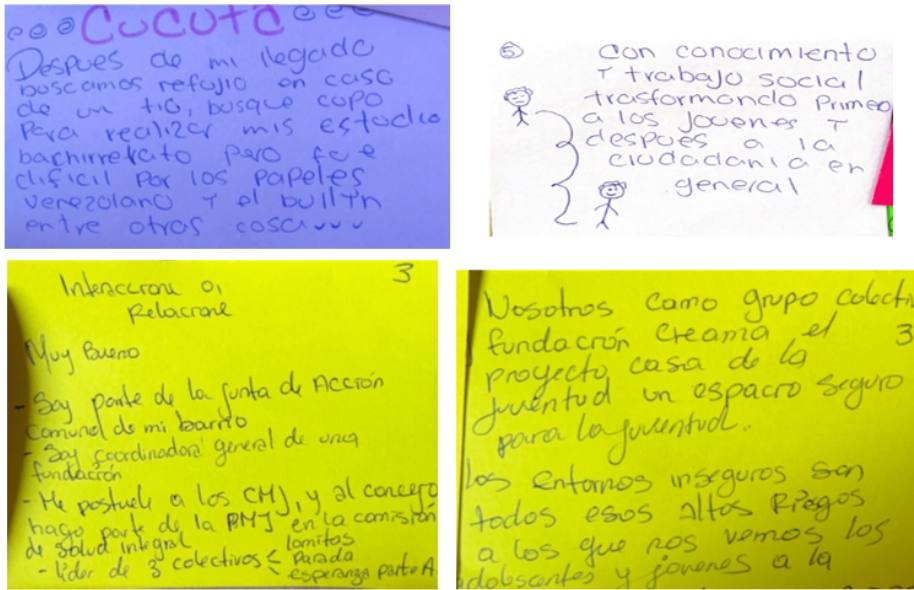 Cucuta
Despues de mi llegada
buscamos refujio en casa
de un tio, busque cupo
Para realizar mis estudio
bachirreta to pero fue
dificil por los papeles
venezolano y el bullin
entre otras cosa
5
Con conocimiento
y trabajo social
trasformando primero
a los jovenes y
despues a la
ciudadania en
general
3
Interaccione o,
Relacione
Muy Bueno
- Soy parte de la junta de Acción
Comunal de mi barrio
- Soy coordinadora general de una
fundación
- Me postulé a los CMJ, y al concejo
hago parte de la PMJ en la comisión
de salud integral
- lider de 3 colectivos < lomitas
Parada
esperanza parte A
Nosotros como grupo colecti
fundación creama el
3
proyecto casa de la
juventud un espacio seguro
para la juventud.
Los entornos inseguros son
todos esos altos Riegos
a los que nos vemos los
adolescentes y jóvenes a la